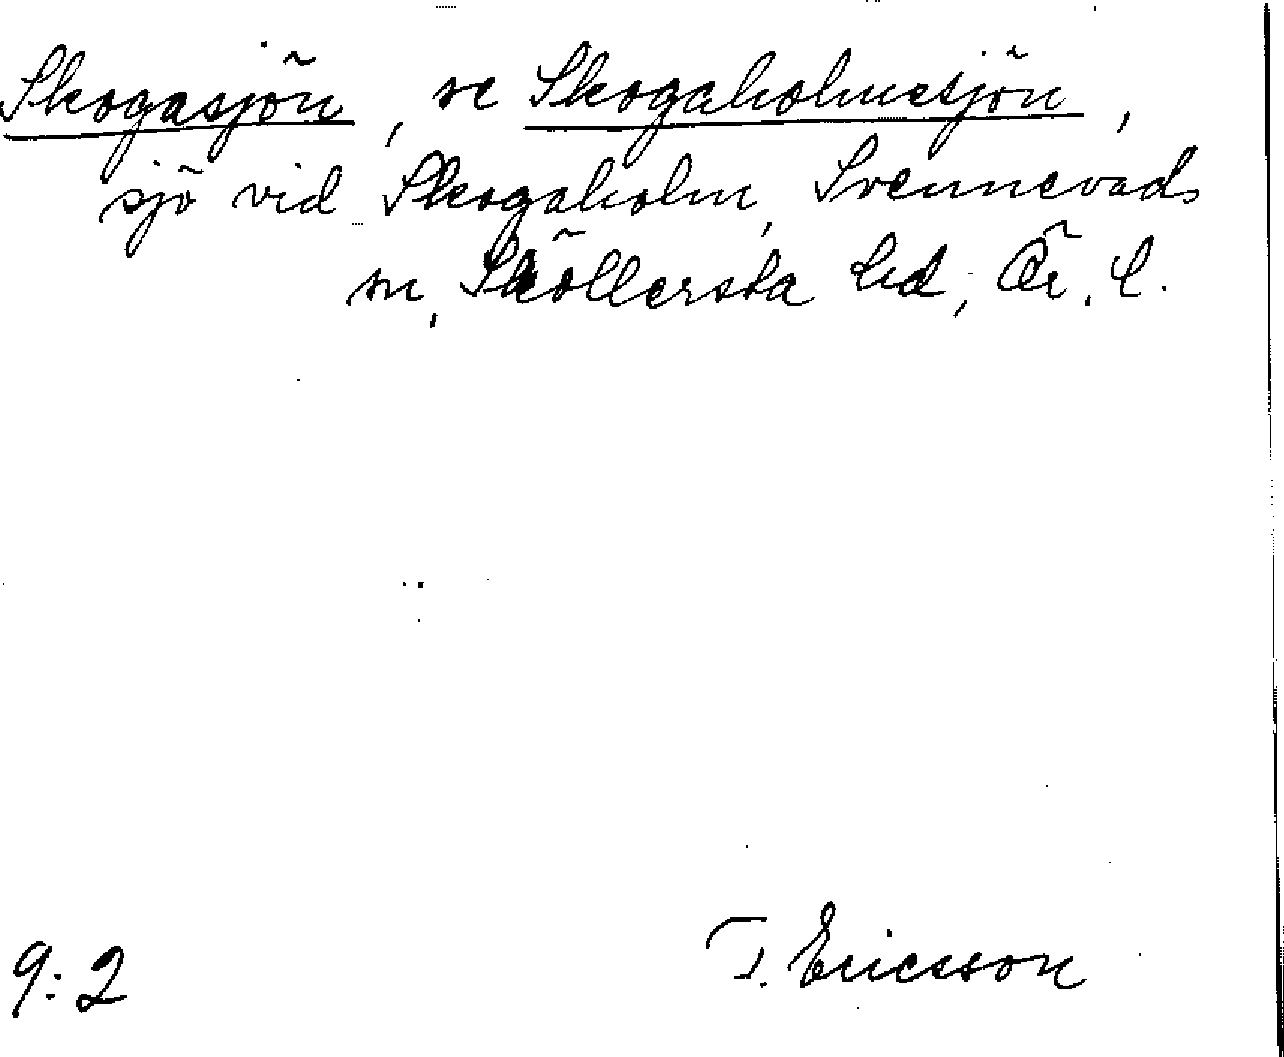 Skogasjön, se Skogaholmssjön,
sjö vid Skogaholm, Svennevads
sn, Sköllersta hd, Ör. l.
T. Ericsson
9:2